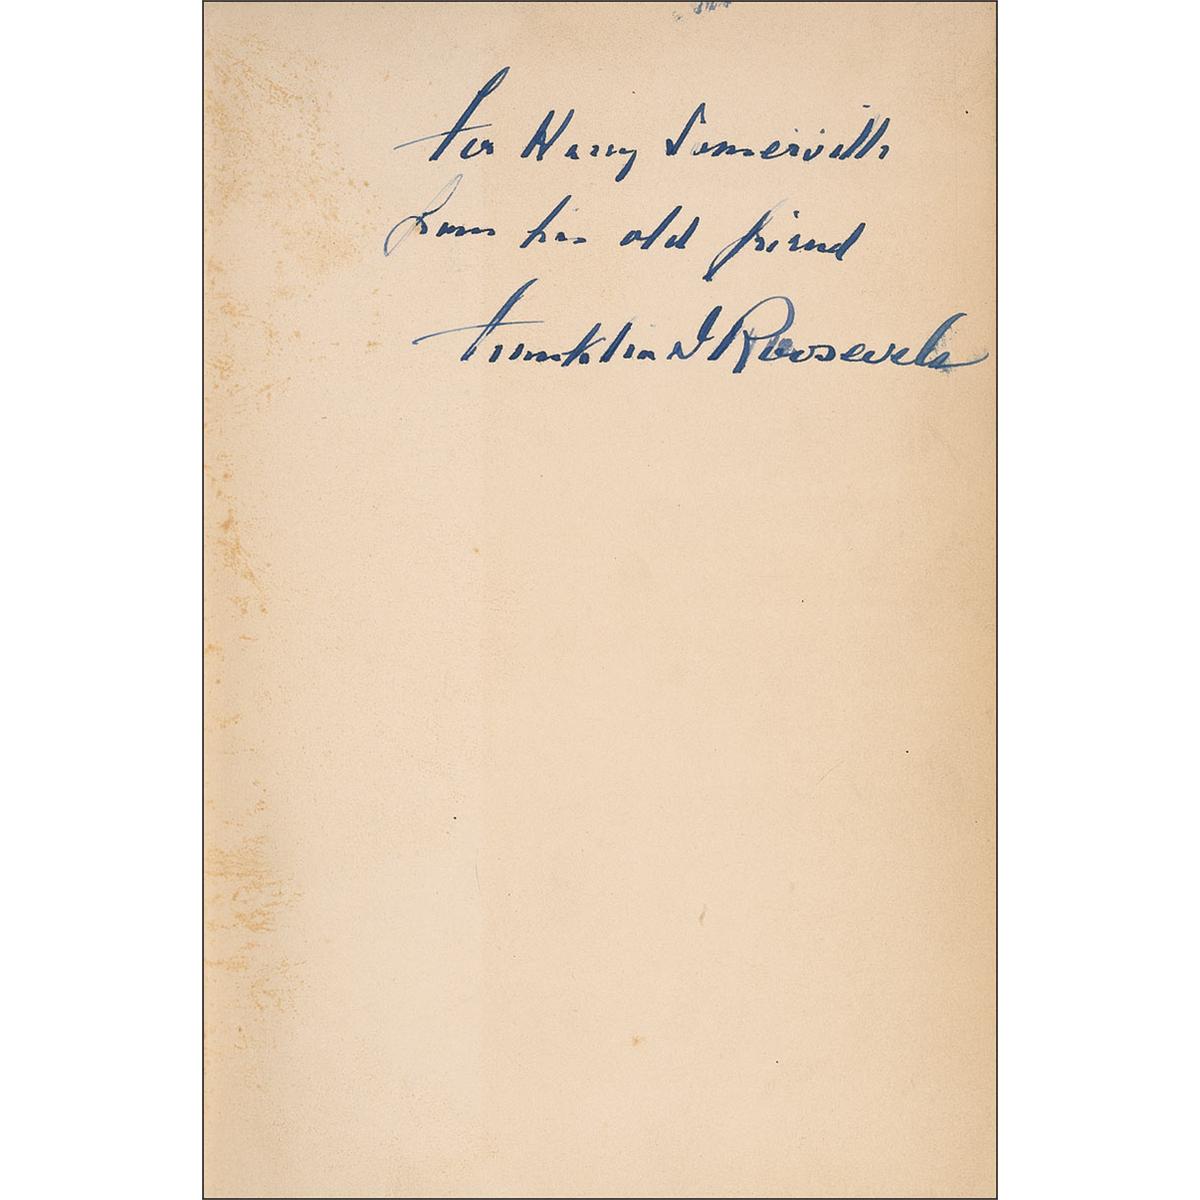 For Harry Somerville
from his old friend
Franklin D Roosevelt